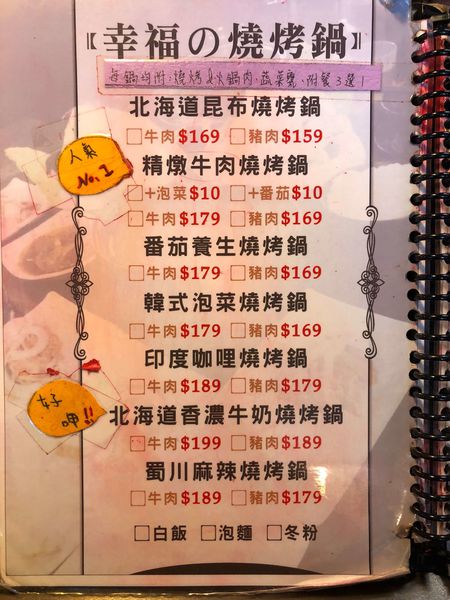 【幸福の燒烤鍋】
每鍋均附：燒烤&火鍋肉、蔬菜甕、附餐3選1
北海道昆布燒烤鍋
□牛肉$169 □豬肉$159
人氣
No.1
精燉牛肉燒烤鍋
□+泡菜$10 □+番茄$10
□牛肉$179 □豬肉$169
番茄養生燒烤鍋
□牛肉$179 □豬肉$169
韓式泡菜燒烤鍋
□牛肉$179 □豬肉$169
印度咖哩燒烤鍋
□牛肉$189 □豬肉$179
好
呷!!
北海道香濃牛奶燒烤鍋
□牛肉$199 □豬肉$189
蜀川麻辣燒烤鍋
□牛肉$189 □豬肉$179
□白飯 □泡麵 □冬粉